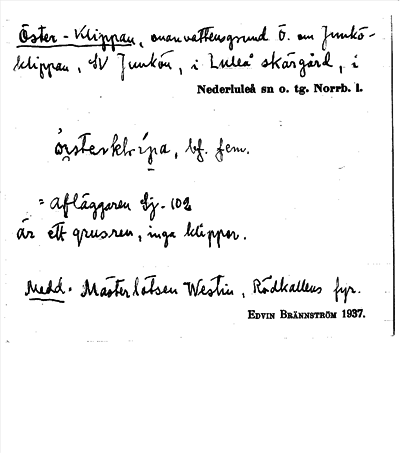 Öster-Klippan, ovanvattensgrund Ö. om Junkö-
klippan, SV Junkön, i Luleå skärgård, i
Nederluleå sn o. tg. Norrb. l.
bf. fem.
= Afläggaren Sj. 102
är ett grusren, inga klippor.
Medd. Mästerlotsen Westin, Rödkallens fyr.
EDVIN BRÄNNSTRÖM 1937.